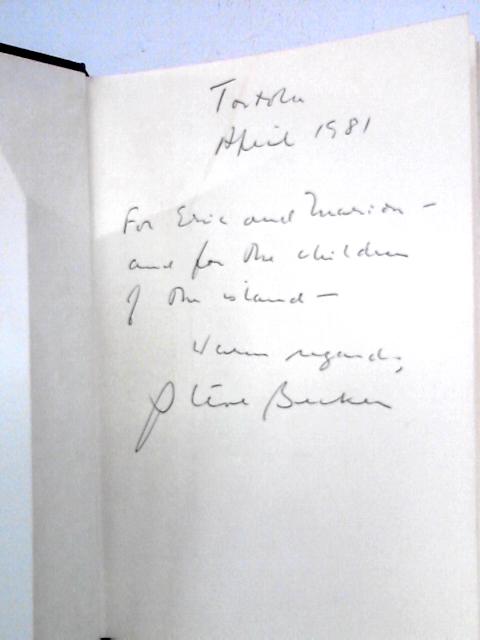 Tortola
April 1981
For Eric and Marion -
and for the children
of the island -
Warm regards,
Steve Becker